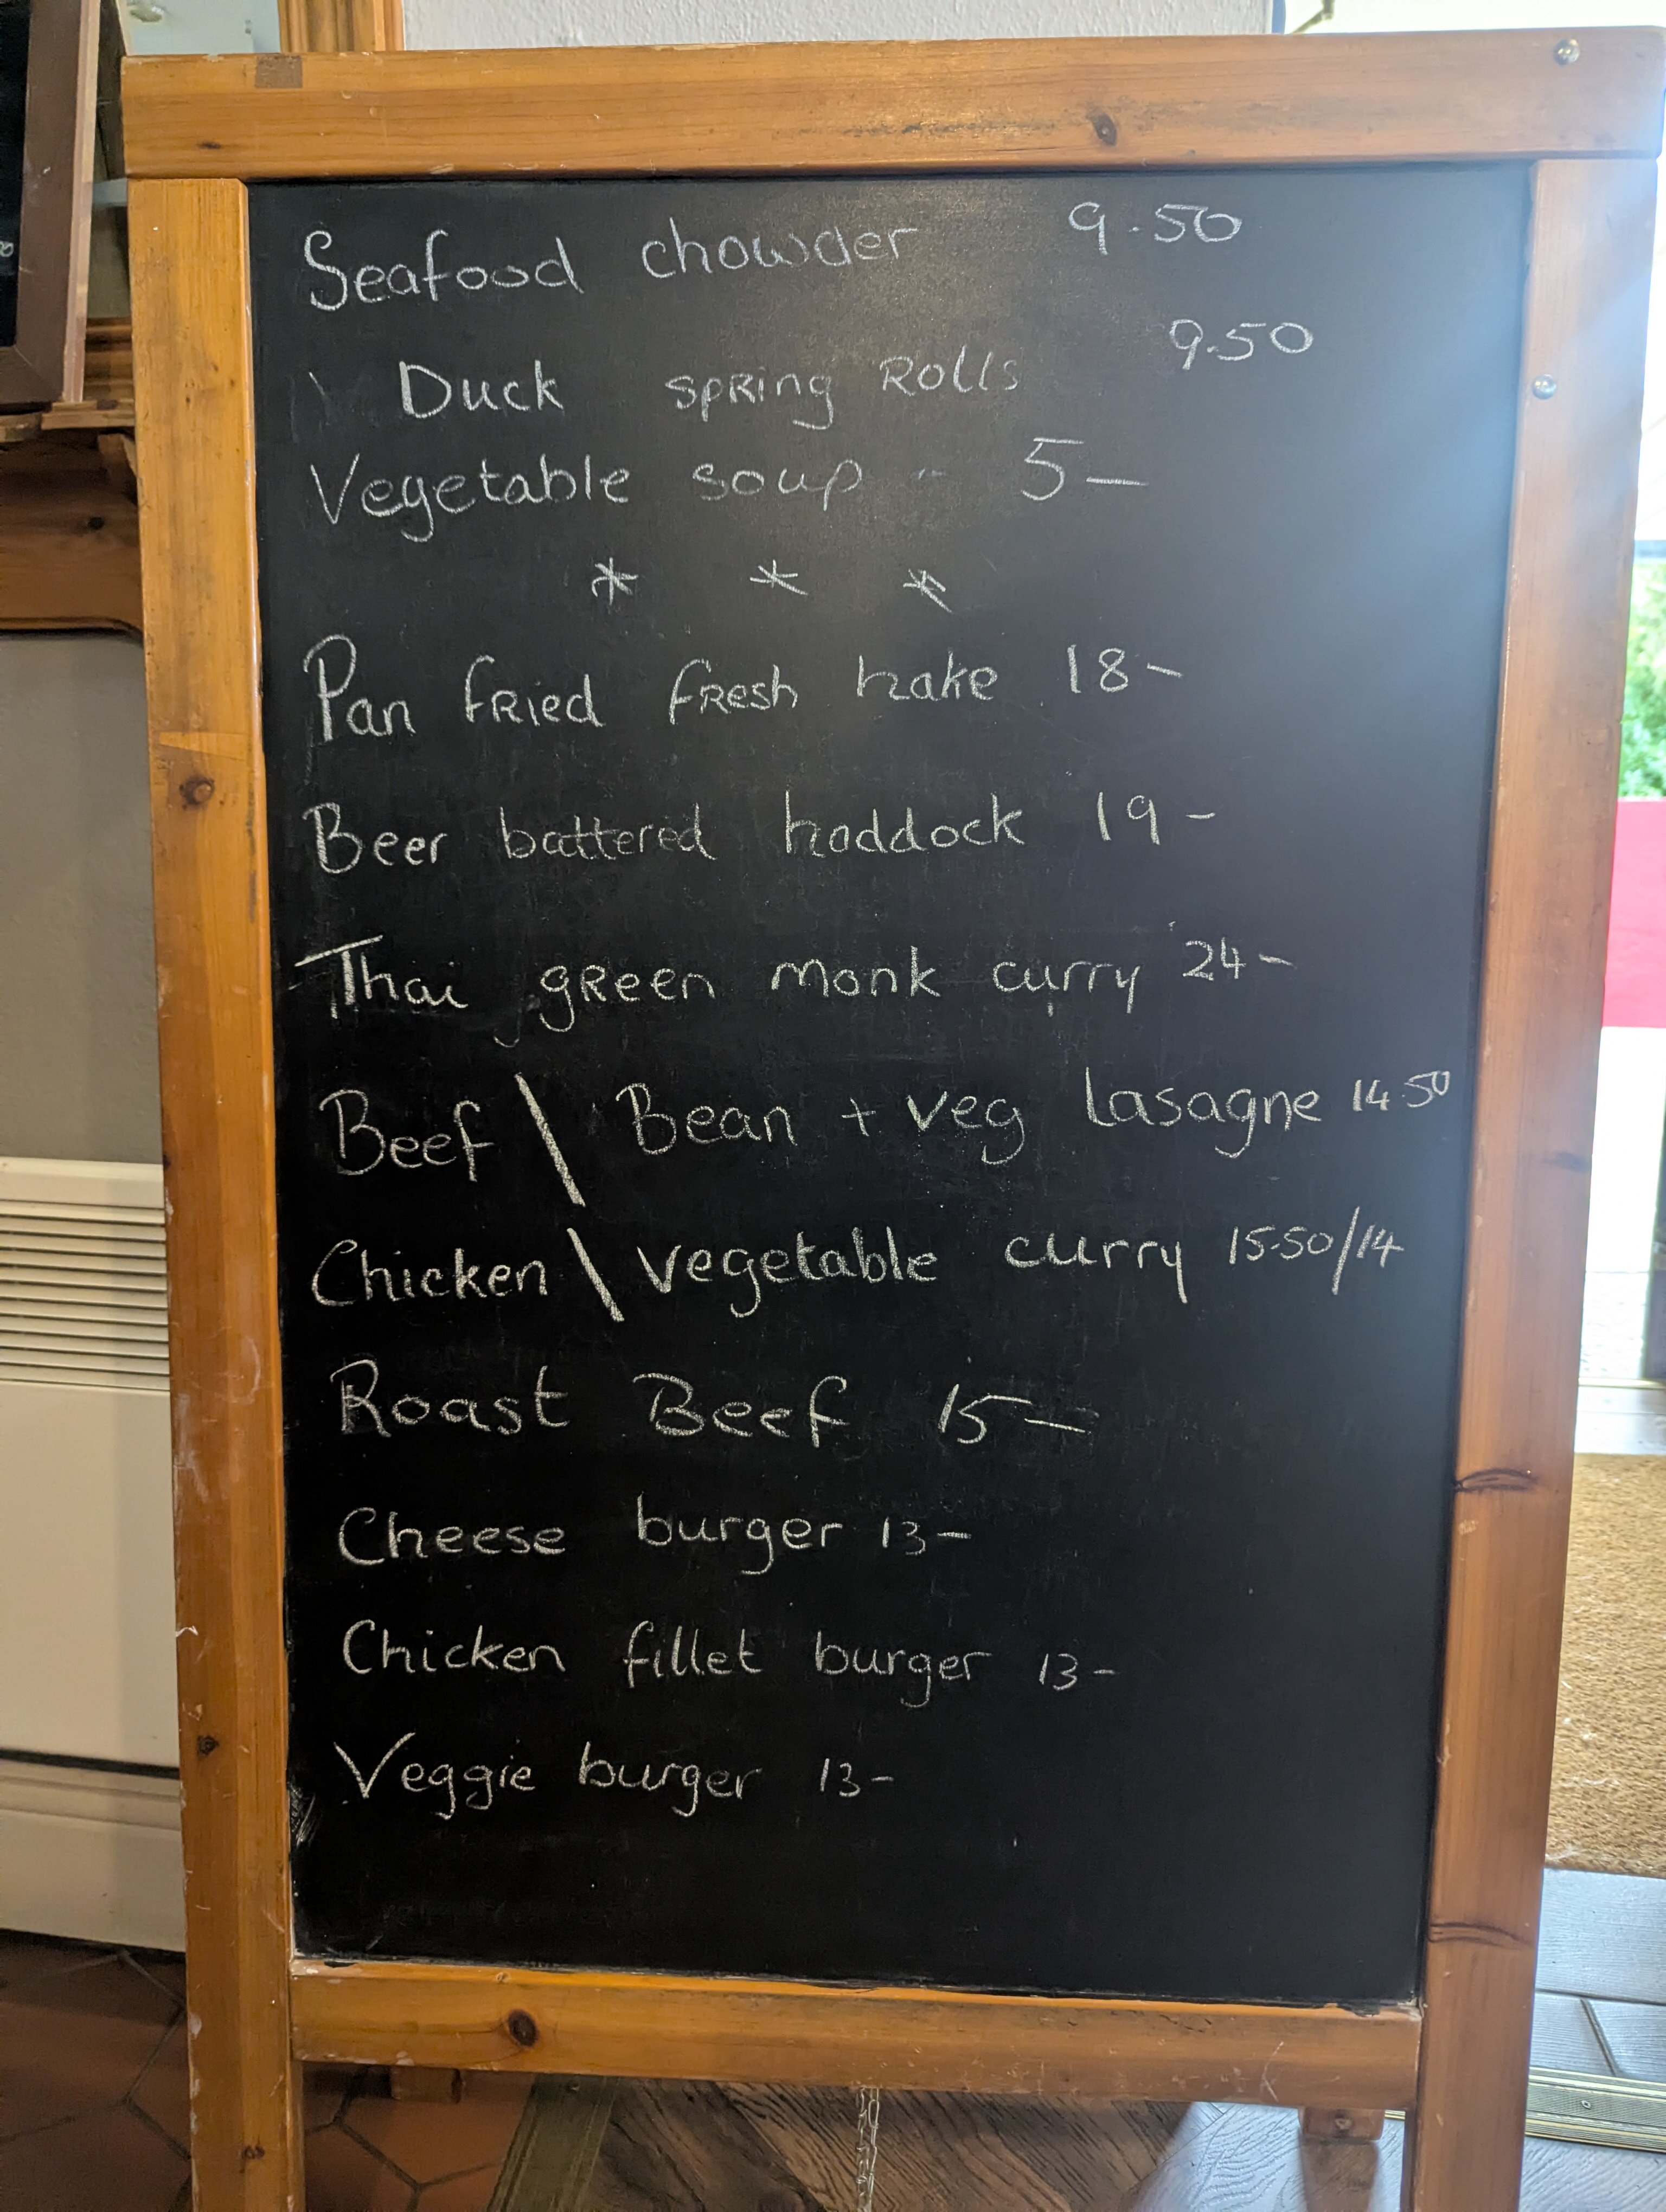 Seafood chowder 9.50
Duck spring Rolls 9.50
Vegetable soup - 5—
* * *
Pan fried fresh hake 18-
Beer battered haddock 19-
Thai green monk curry 24-
Beef \ Bean + veg lasagne 14.50
Chicken \ vegetable curry 15.50/14
Roast Beef 15—
Cheese burger 13-
Chicken fillet burger 13-
Veggie burger 13-